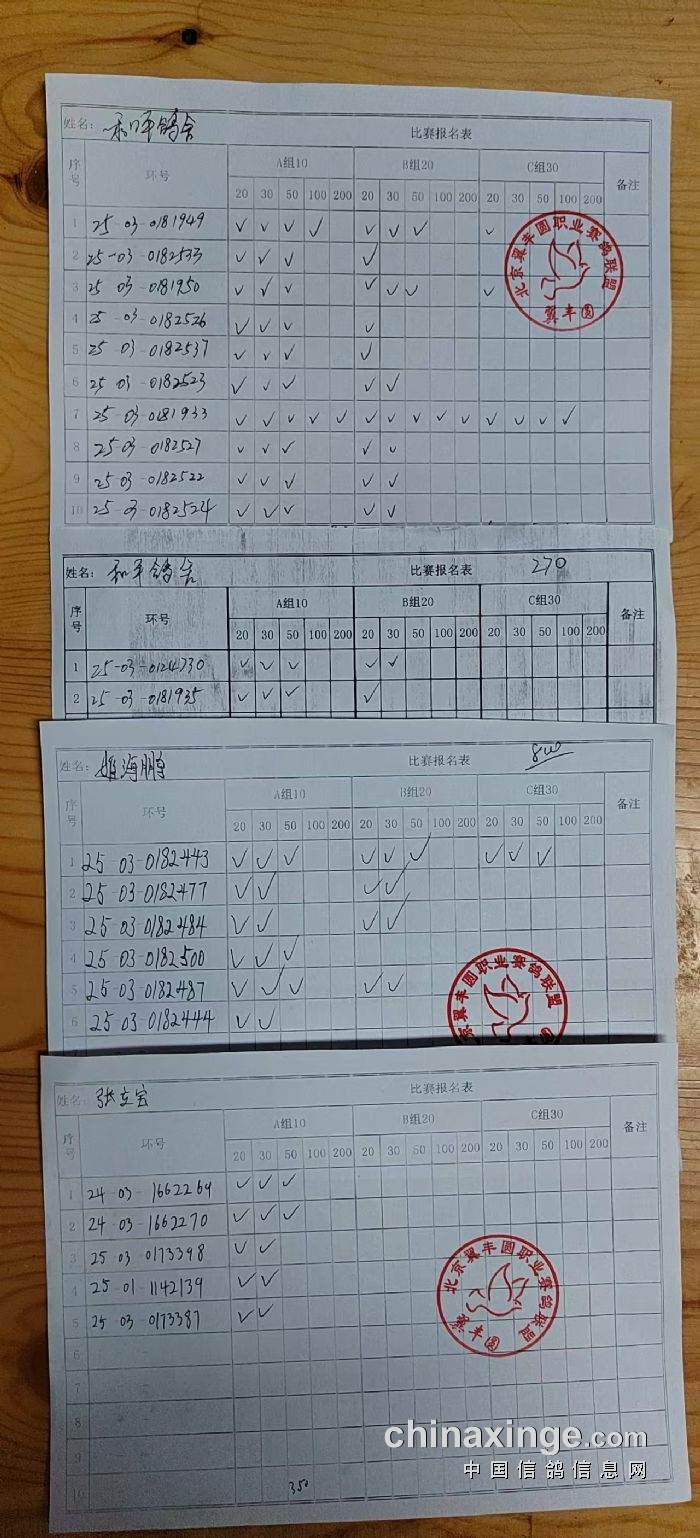 姓名： 和平鸽舍 比赛报名表
序号 环号 A组10 B组20 C组30 备注
20 30 50 100 200 20 30 50 100 200 20 30 50 100 200
1 25-03-0181949 ✓ ✓ ✓ ✓ ✓ ✓ ✓ ✓
2 25-03-0182533 ✓ ✓ ✓ ✓
3 25 03-0181950 ✓ ✓ ✓ ✓ ✓ ✓ ✓
4 25-03-0182526 ✓ ✓ ✓ ✓
5 25-03-0182537 ✓ ✓ ✓ ✓
6 25-03-0182523 ✓ ✓ ✓ ✓ ✓
7 25-03-0181933 ✓ ✓ ✓ ✓ ✓ ✓ ✓ ✓ ✓ ✓ ✓ ✓ ✓ ✓
8 25-03-0182527 ✓ ✓ ✓ ✓ ✓
9 25-03-0182522 ✓ ✓ ✓ ✓ ✓
10 25-03-0182524 ✓ ✓ ✓ ✓ ✓
北京翼丰圆职业赛鸽联盟
翼丰圆
姓名： 和平鸽舍 比赛报名表 270
序号 环号 A组10 B组20 C组30 备注
20 30 50 100 200 20 30 50 100 200 20 30 50 100 200
1 25-03-0124730 ✓ ✓ ✓ ✓ ✓
2 25-03-0181935 ✓ ✓ ✓ ✓
姓名： 姬海鹏 比赛报名表 800
序号 环号 A组10 B组20 C组30 备注
20 30 50 100 200 20 30 50 100 200 20 30 50 100 200
1 25-03-0182443 ✓ ✓ ✓ ✓ ✓ ✓ ✓ ✓ ✓
2 25-03-0182477 ✓ ✓ ✓ ✓
3 25-03-0182484 ✓ ✓ ✓ ✓
4 25-03-0182500 ✓ ✓ ✓
5 25-03-0182487 ✓ ✓ ✓ ✓ ✓
6 25-03-0182444 ✓ ✓
京翼丰圆职业赛鸽联盟
圆
姓名： 张立宏 比赛报名表
序号 环号 A组10 B组20 C组30 备注
20 30 50 100 200 20 30 50 100 200 20 30 50 100 200
1 24-03-1662269 ✓ ✓ ✓
2 24-03-1662270 ✓ ✓ ✓
3 25-03-0173398 ✓ ✓
4 25-01-1142139 ✓ ✓
5 25-03-0173387 ✓ ✓
6 - -
7 - -
8 - -
9
10 350
北京翼丰圆职业赛鸽联盟
翼丰圆
chinaxinge.com
中国信鸽信息网